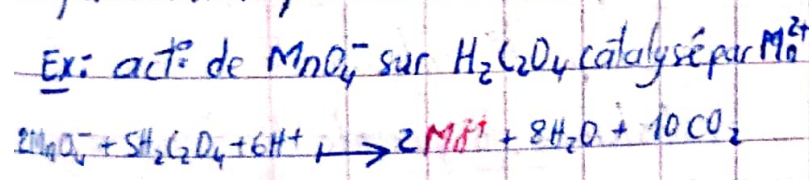 Ex: act° de MnO₄⁻ sur H₂C₂O₄ catalysé par Mn²⁺
2MnO₄⁻ + 5H₂C₂O₄ + 6H⁺ → 2 Mn²⁺ + 8H₂O + 10 CO₂